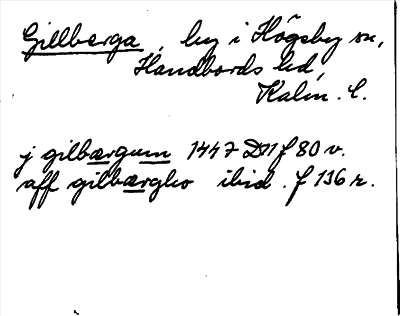 Gillberga, by i Högsby sn,
Handbörds hd,
Kalm. l.
j gilbærgum 1447 D11 f 80 v.
aff gilbærgho ibid. f 136 r.